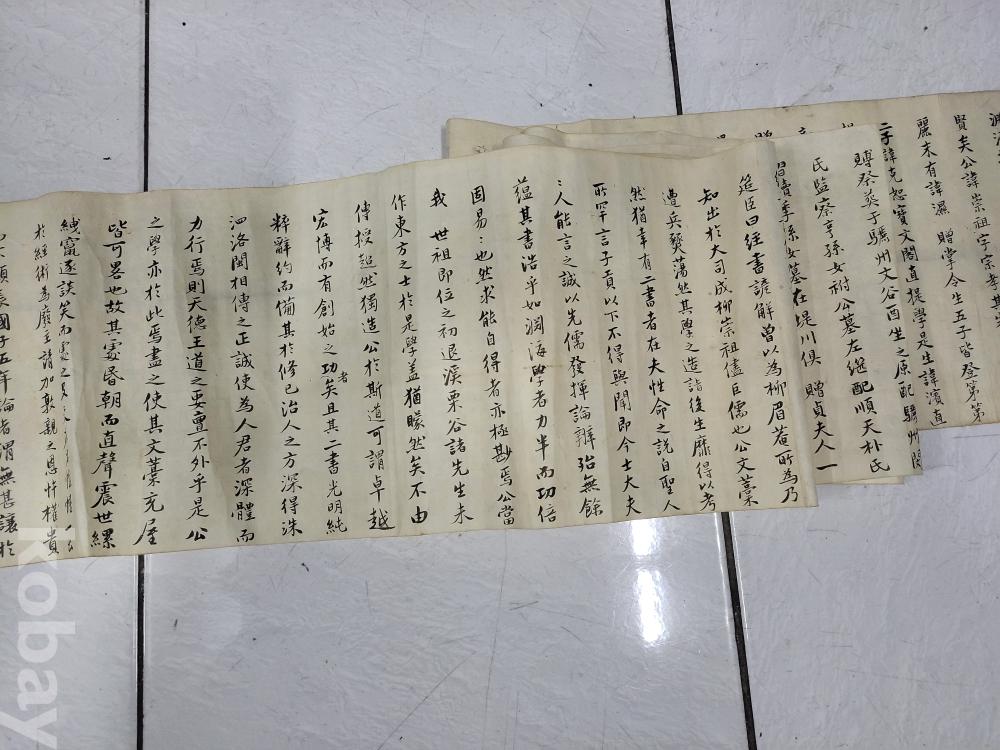 賢矣公諱崇祖字宗孝其
麗末有諱濕 贈掌令生五子皆登第第
二子諱克恕寶文閣直提學是生諱濱直
賻祭葬于驪州文谷酉坐之原配驪州閔
氏監察亨孫女祔公墓左繼配順天朴氏
季孫女墓在堤川俱 贈貞夫人一
筵臣曰經書諺解曾以為柳眉菴所為乃
知出於大司成柳崇祖儘巨儒也公文藁
遭兵燹蕩然其學之造詣後生靡得以考
然猶幸有二書者在夫性命之說自聖人
所罕言子貢以下不得與聞即今士大夫
人人能言之誠以先儒發揮論辨殆無餘
蘊其書浩乎如淵海學者力半而功倍
固易易也然求能自得者亦極尠焉公當
我 世祖即位之初退溪栗谷諸先生未
作東方之士於是學盖猶矇然矣不由
傳授超然獨造公於斯道可謂卓越
宏博而有創始之功者矣且其二書光明純
粹辭約而備其於修己治人之方深得洙
泗洛閩相傳之正誠使為人君者深體而
力行焉則天德王道之要亶不外乎是公
之學亦於此焉盡之使其文藁充屋
皆可畧也故其處昏朝而直聲震世縲
絏竄逐談矣而處之
於經術為廢主請加敦親之恩忤權貴
頌長國子五年論者謂無甚讓於
kobay